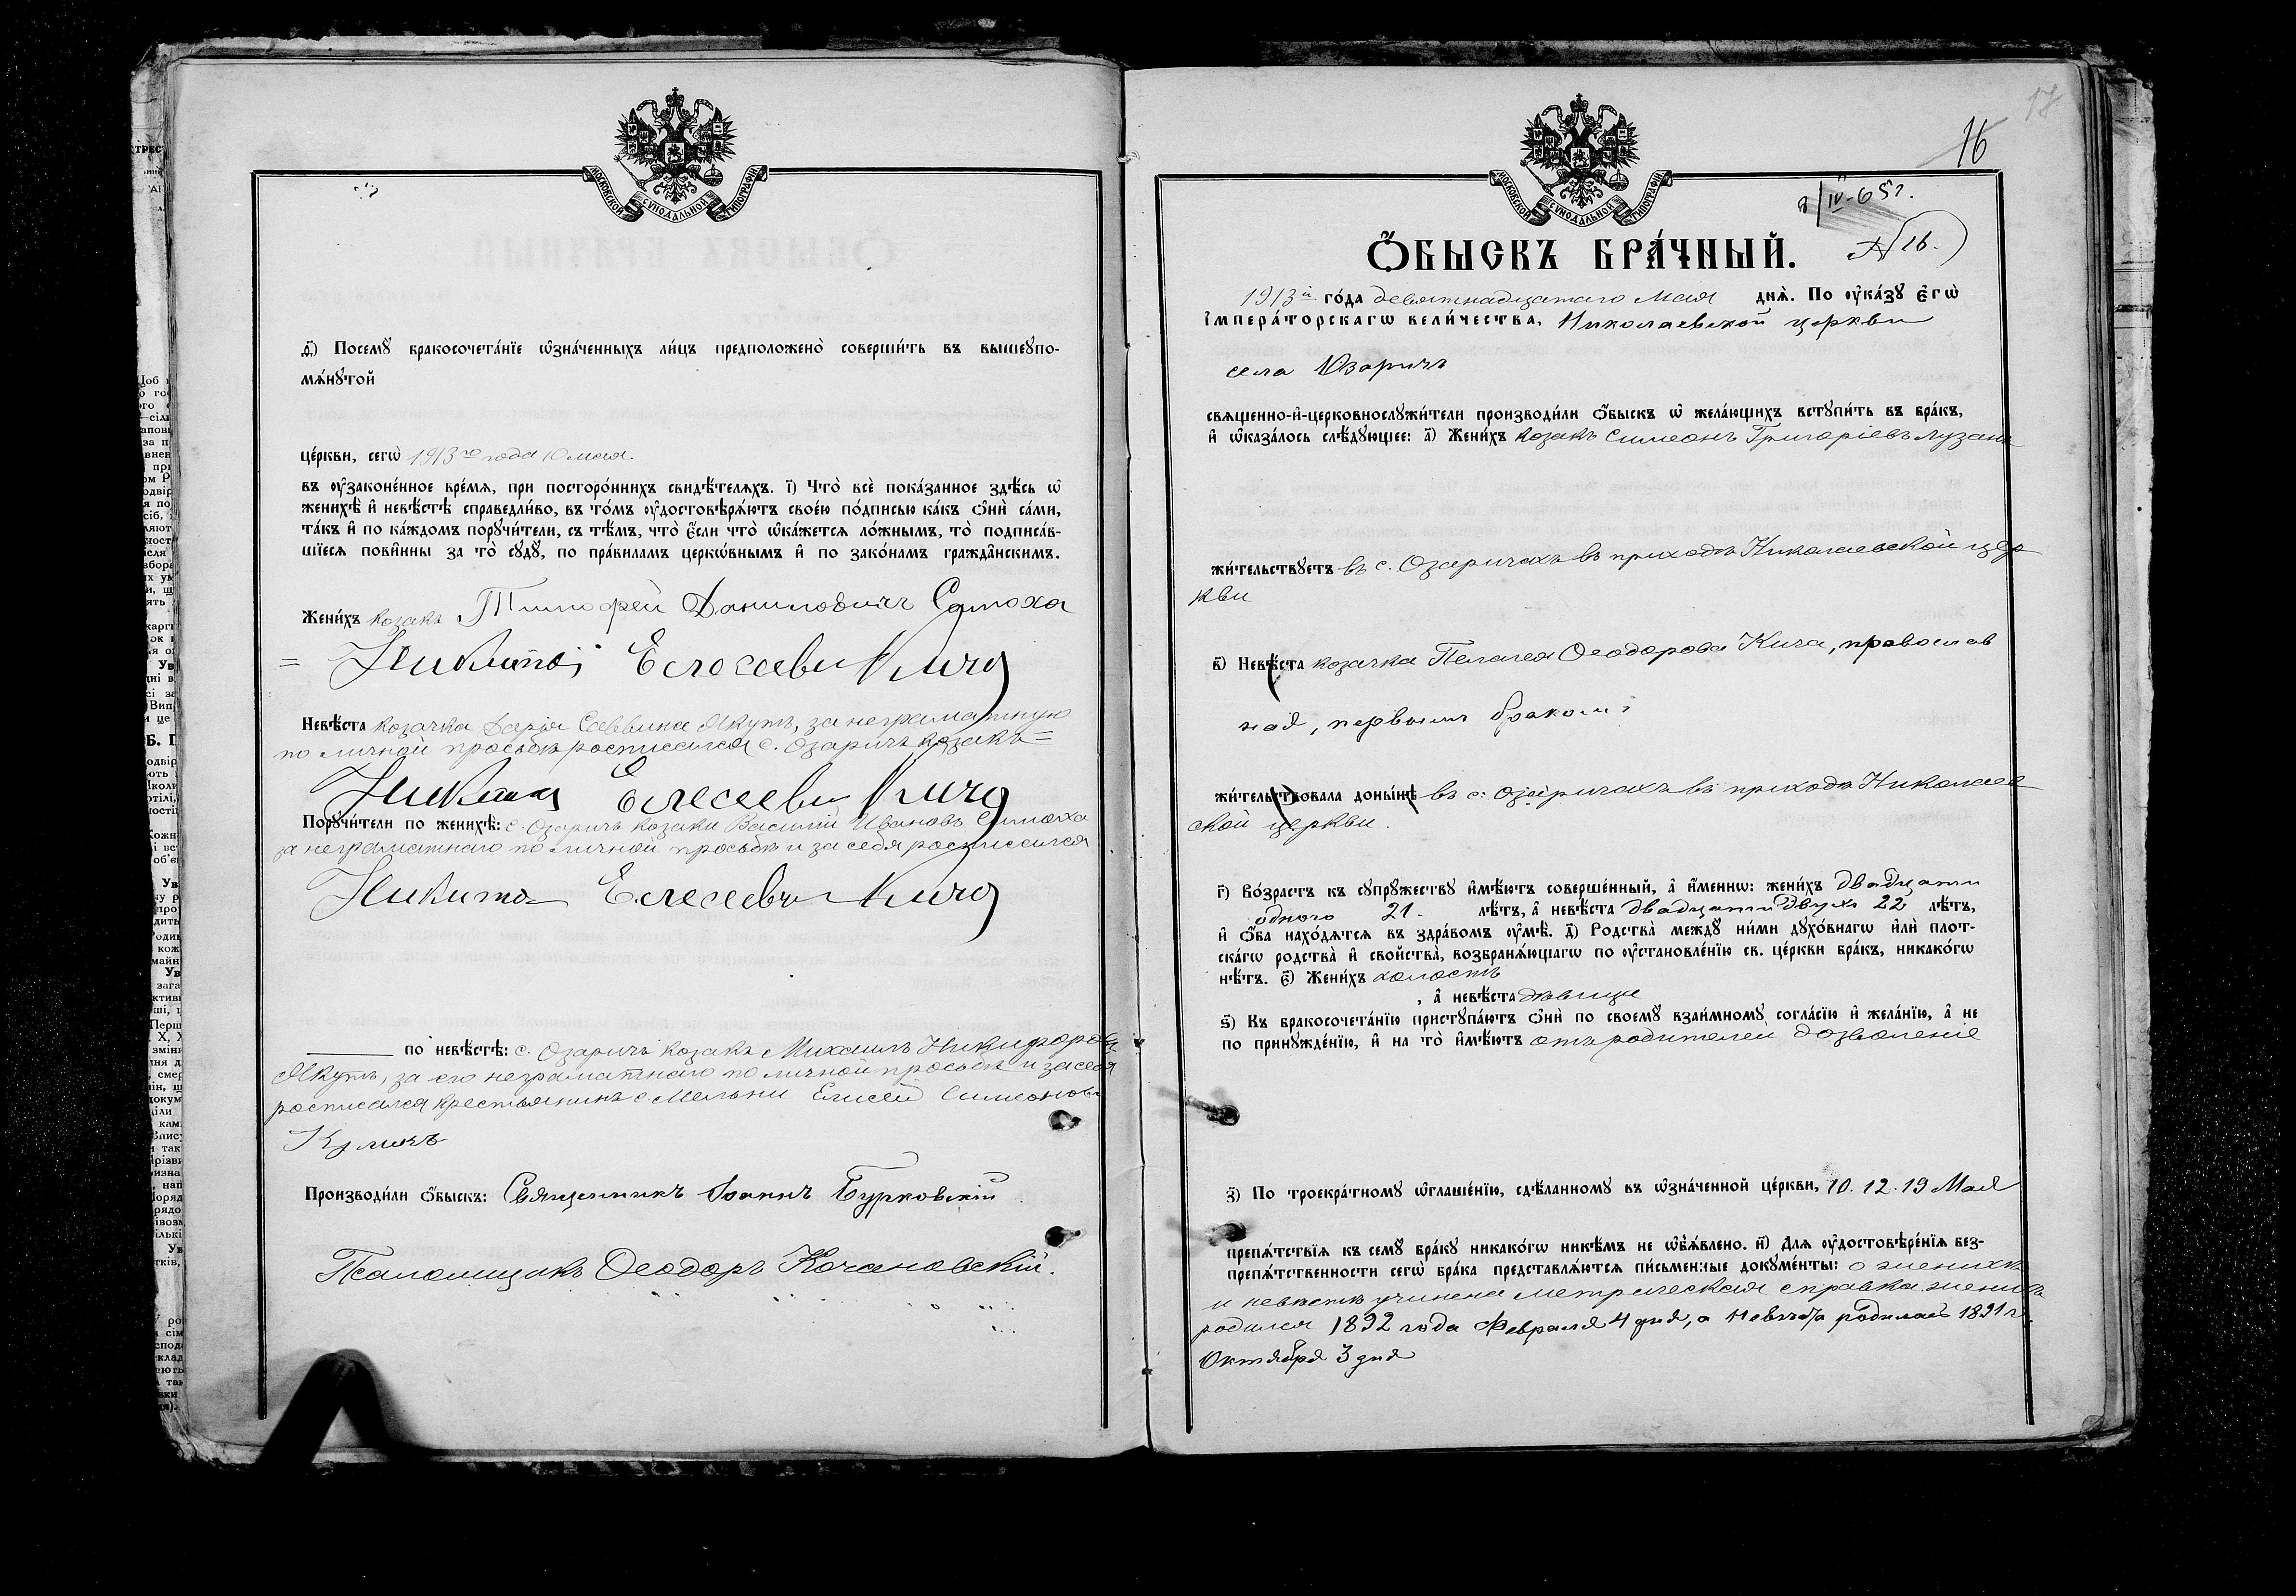 МОСКОВСКОЙ СѴНОДАЛЬНОЙ ТИПОГРАФІИ
ѳ҃) Посемꙋ бракосочета́нїе ѡ҆зна́ченныхъ ли́цъ предположено̀ соверши́ть въ вышеꙋпо-
мѧ́нꙋтой
це́ркви, сегѡ̀ 1913го года 10 мая.
въ ᲂу҆законе́нное вре́мѧ, при посторо́ннихъ свидѣ́телѧхъ. і҃) Что̀ всѐ пока́занное здѣ́сь ѡ҆
женихѣ̀ и҆ невѣ́стѣ справедли́во, въ то́мъ ᲂу҆достовѣрѧ́ютъ свое́ю по́дписью ка́къ ѻ҆нѝ са́ми,
та́къ и҆ по ка́ждомъ порꙋчи́тели, съ тѣ́мъ, что̀ є҆́сли что̀ ѡ҆ка́жется ло́жнымъ, то̀ подписа́в-
шїеся пови́нны за то̀ сꙋдꙋ̀, по пра́виламъ церко́внымъ и҆ по зако́намъ гражда́нскимъ.
Жени́хъ козакъ Тимофей Данилович Самоха
= Никита Елесеевич Кича
Невѣ́ста козачка Дарія Саввина Якутъ, за неграматную
по личной просьбѣ росписался с. Озаричъ козакъ =
Никита Елесеевич Кича
Порꙋчи́тели по женихѣ̀: с. Озаричъ козаки Василій Ивановъ Самоха
за неграматнаго по личной просьбѣ и за себя росписался
Никита Елесеевич Кича
по невѣ́стѣ: с. Озаричъ козакъ Михаилъ Никифоровъ
Якутъ, за его неграматнаго по личной просьбѣ и за себя
росписался крестьянинъ с. Мельни Елисей Симеоновъ
Производи́ли ѻ҆́быскъ: Священникъ Іоаннъ Бурковскій
Псаломщикъ Ѳеодоръ Кочановскій.
17
16
МОСКОВСКОЙ СѴНОДАЛЬНОЙ ТИПОГРАФІИ
8/IV-65г.
№ 16.
Ѻ҆́БЫСКЪ БРА́ЧНЫЙ.
1913й го́да девятнадцатаго Мая днѧ̀. По ᲂу҆ка́зꙋ є҆гѡ̀
і҆мпера́торскагѡ вели́чества, Николаевской церкви
села Озаричъ
свѧщенно-и҆-церковнослꙋжи́тели производи́ли ѻ҆́быскъ ѡ҆ жела́ющихъ встꙋпи́ть въ бра́къ,
и҆ ѡ҆каза́лось слѣ́дꙋющее: а҃) Жени́хъ козакъ Симеонъ Григоріевъ Лузан
жи́тельствꙋетъ въ с. Озаричахъ въ приходѣ Николаевской цер
кви
в҃) Невѣ́ста козачка Пелагея Ѳеодорова Кича, православ
ная, первымъ бракомъ
жи́тельствовала доны́нѣ въ с. Озаричахъ въ приходѣ Николаев
ской церкви.
г҃) Во́зрастъ къ сꙋпрꙋ́жествꙋ и҆мѣ́ютъ соверше́нный, а҆ и҆́меннѡ: жени́хъ двадцати
одного 21. лѣ́тъ, а҆ невѣ́ста двадцати двухъ 22 лѣ́тъ,
и҆ ѻ҆́ба нахо́дѧтсѧ въ здра́вомъ ᲂу҆мѣ̀. д҃) Родства̀ междꙋ̀ ни́ми дꙋхо́внагѡ и҆лѝ плот-
ска́гѡ родства̀ и҆ сво́йства̀, возбранѧ́ющагѡ по ᲂу҆становле́нїю св. це́ркви бра́къ, никако́гѡ
нѣ́тъ. є҃) Жени́хъ холостъ
, а҆ невѣ́ста дѣвица
ѕ҃) Къ бракосочета́нїю пристꙋпа́ютъ ѻ҆нѝ по своемꙋ̀ взаи́мномꙋ согла́сїю и҆ жела́нїю, а҆ не
по принꙋжде́нїю, и҆ на то̀ и҆мѣ́ютъ отъ родителей дозволеніе
з҃) По троекра́тномꙋ ѡ҆глаше́нїю, сдѣ́ланномꙋ въ ѡ҆зна́ченной це́ркви, 10. 12. 19 Мая
препѧ́тствїѧ къ семꙋ̀ бра́кꙋ никако́гѡ никѣ́мъ не ѡ҆б̾ѧ́влено. и҃) Для ᲂу҆достовѣре́нїѧ без-
препѧ́тственности сегѡ̀ бра́ка представлѧ́ютсѧ пи́сьменные докꙋме́нты: о женихѣ
и невѣстѣ учинена метрическая справка жених
родился 1892 года Февраля 4 дня, а невѣста родилась 1891 г.
Октября 3 дня